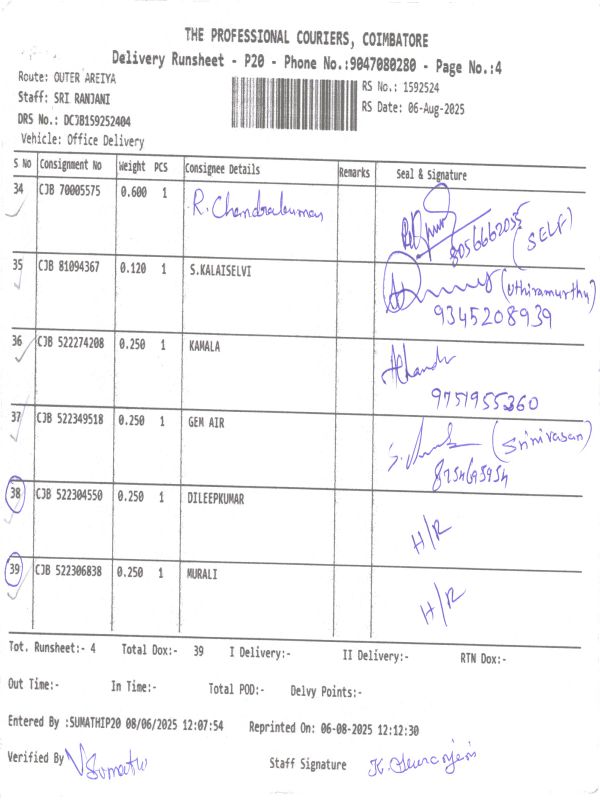 THE PROFESSIONAL COURIERS, COIMBATORE
Delivery Runsheet - P20 - Phone No.:9047080280 - Page No.:4
Route: OUTER AREIYA
Staff: SRI RANJANI
DRS No.: DCJB159252404
Vehicle: Office Delivery
RS No.: 1592524
RS Date: 06-Aug-2025
S No Consignment No Weight PCS Consignee Details Remarks Seal & Signature
34 CJB 70005575 0.600 1 R. Chandrakumar
8056662055 (SELF)
35 CJB 81094367 0.120 1 S.KALAISELVI (Uthiramurthy)
9345208939
36 CJB 522274208 0.250 1 KAMALA
9751955360
37 CJB 522349518 0.250 1 GEM AIR (Srinivasan)
8754695954
38 CJB 522304550 0.250 1 DILEEPKUMAR H/R
39 CJB 522306838 0.250 1 MURALI H/R
Tot. Runsheet:- 4 Total Dox:- 39 I Delivery:- II Delivery:- RTN Dox:-
Out Time:- In Time:- Total POD:- Delvy Points:-
Entered By :SUMATHIP20 08/06/2025 12:07:54 Reprinted On: 06-08-2025 12:12:30
Verified By V Sumathi Staff Signature